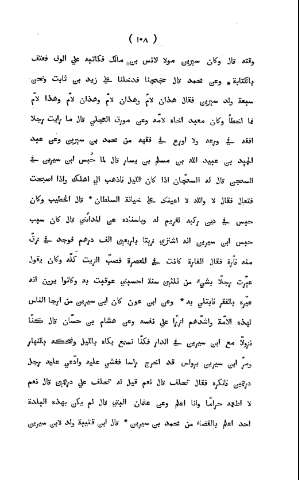 ( ١٠٨ )
وقته قال وكان سيرين مولا لانس بن مالك فكاتبه على الوف فعتف
بالكتابة * وعن محمد قال حججنا فدخلنا على زيد بن ثابت ونحن
سبعة ولد سيرين فقال هذان لأم وهذان لأم وهذان لأم وهذا لأم
فما اخطأ وكان معبد اخاه لامه * وعن مورق العجلي قال ما رايت رجلا
افقه في ورعه ولا اورع في فقهه من محمد بن سيرين * وعن عبد
الحميد بن عبيد الله بن مسلم بن يسار قال لما حبس ابن سيرين في
السجن قال له السجان اذا كان الليل فاذهب الى اهلك واذا اصبحت
فتعال فقال لا والله لا اعينك على خيانة السلطان * قال الخطيب وكان
حبس في دين ركبه لغريم له وباسناده عن المدائني قال كان سبب
حبس ابن سيرين انه اشترى زيتا باربعين الف درهم فوجد في زق
منه فارة فقال الفارة كانت في المعصرة فصب الزيت كله وكان يقول
عيرت رجلا بشيء من ثلثين سنة احسبني عوقبت به وكانوا يرون انه
عيره بالفقر فابتلي به * وعن ابن عون كان ابن سيرين من ارجا الناس
لهذه الامة واشدهم ازرا على نفسه وعن هشام بن حسان قال كنا
نزولا مع ابن سيرين في الدار فكنا نسمع بكاه بالليل وضحكه بالنهار
ومر ابن سيرين برواس قد اخرج راسا فغشي عليه وادعي عليه رجل
درهمين فانكره فقال تحلف قال نعم قيل له تحلف على درهمين قال نعم
لا اطعمه حراما وانا اعلم وعن عثمان البتي قال لم يكن بهذه البلدة
احد اعلم بالقضاء من محمد بن سيرين * قال ابن قتيبة ولد لابن سيرين